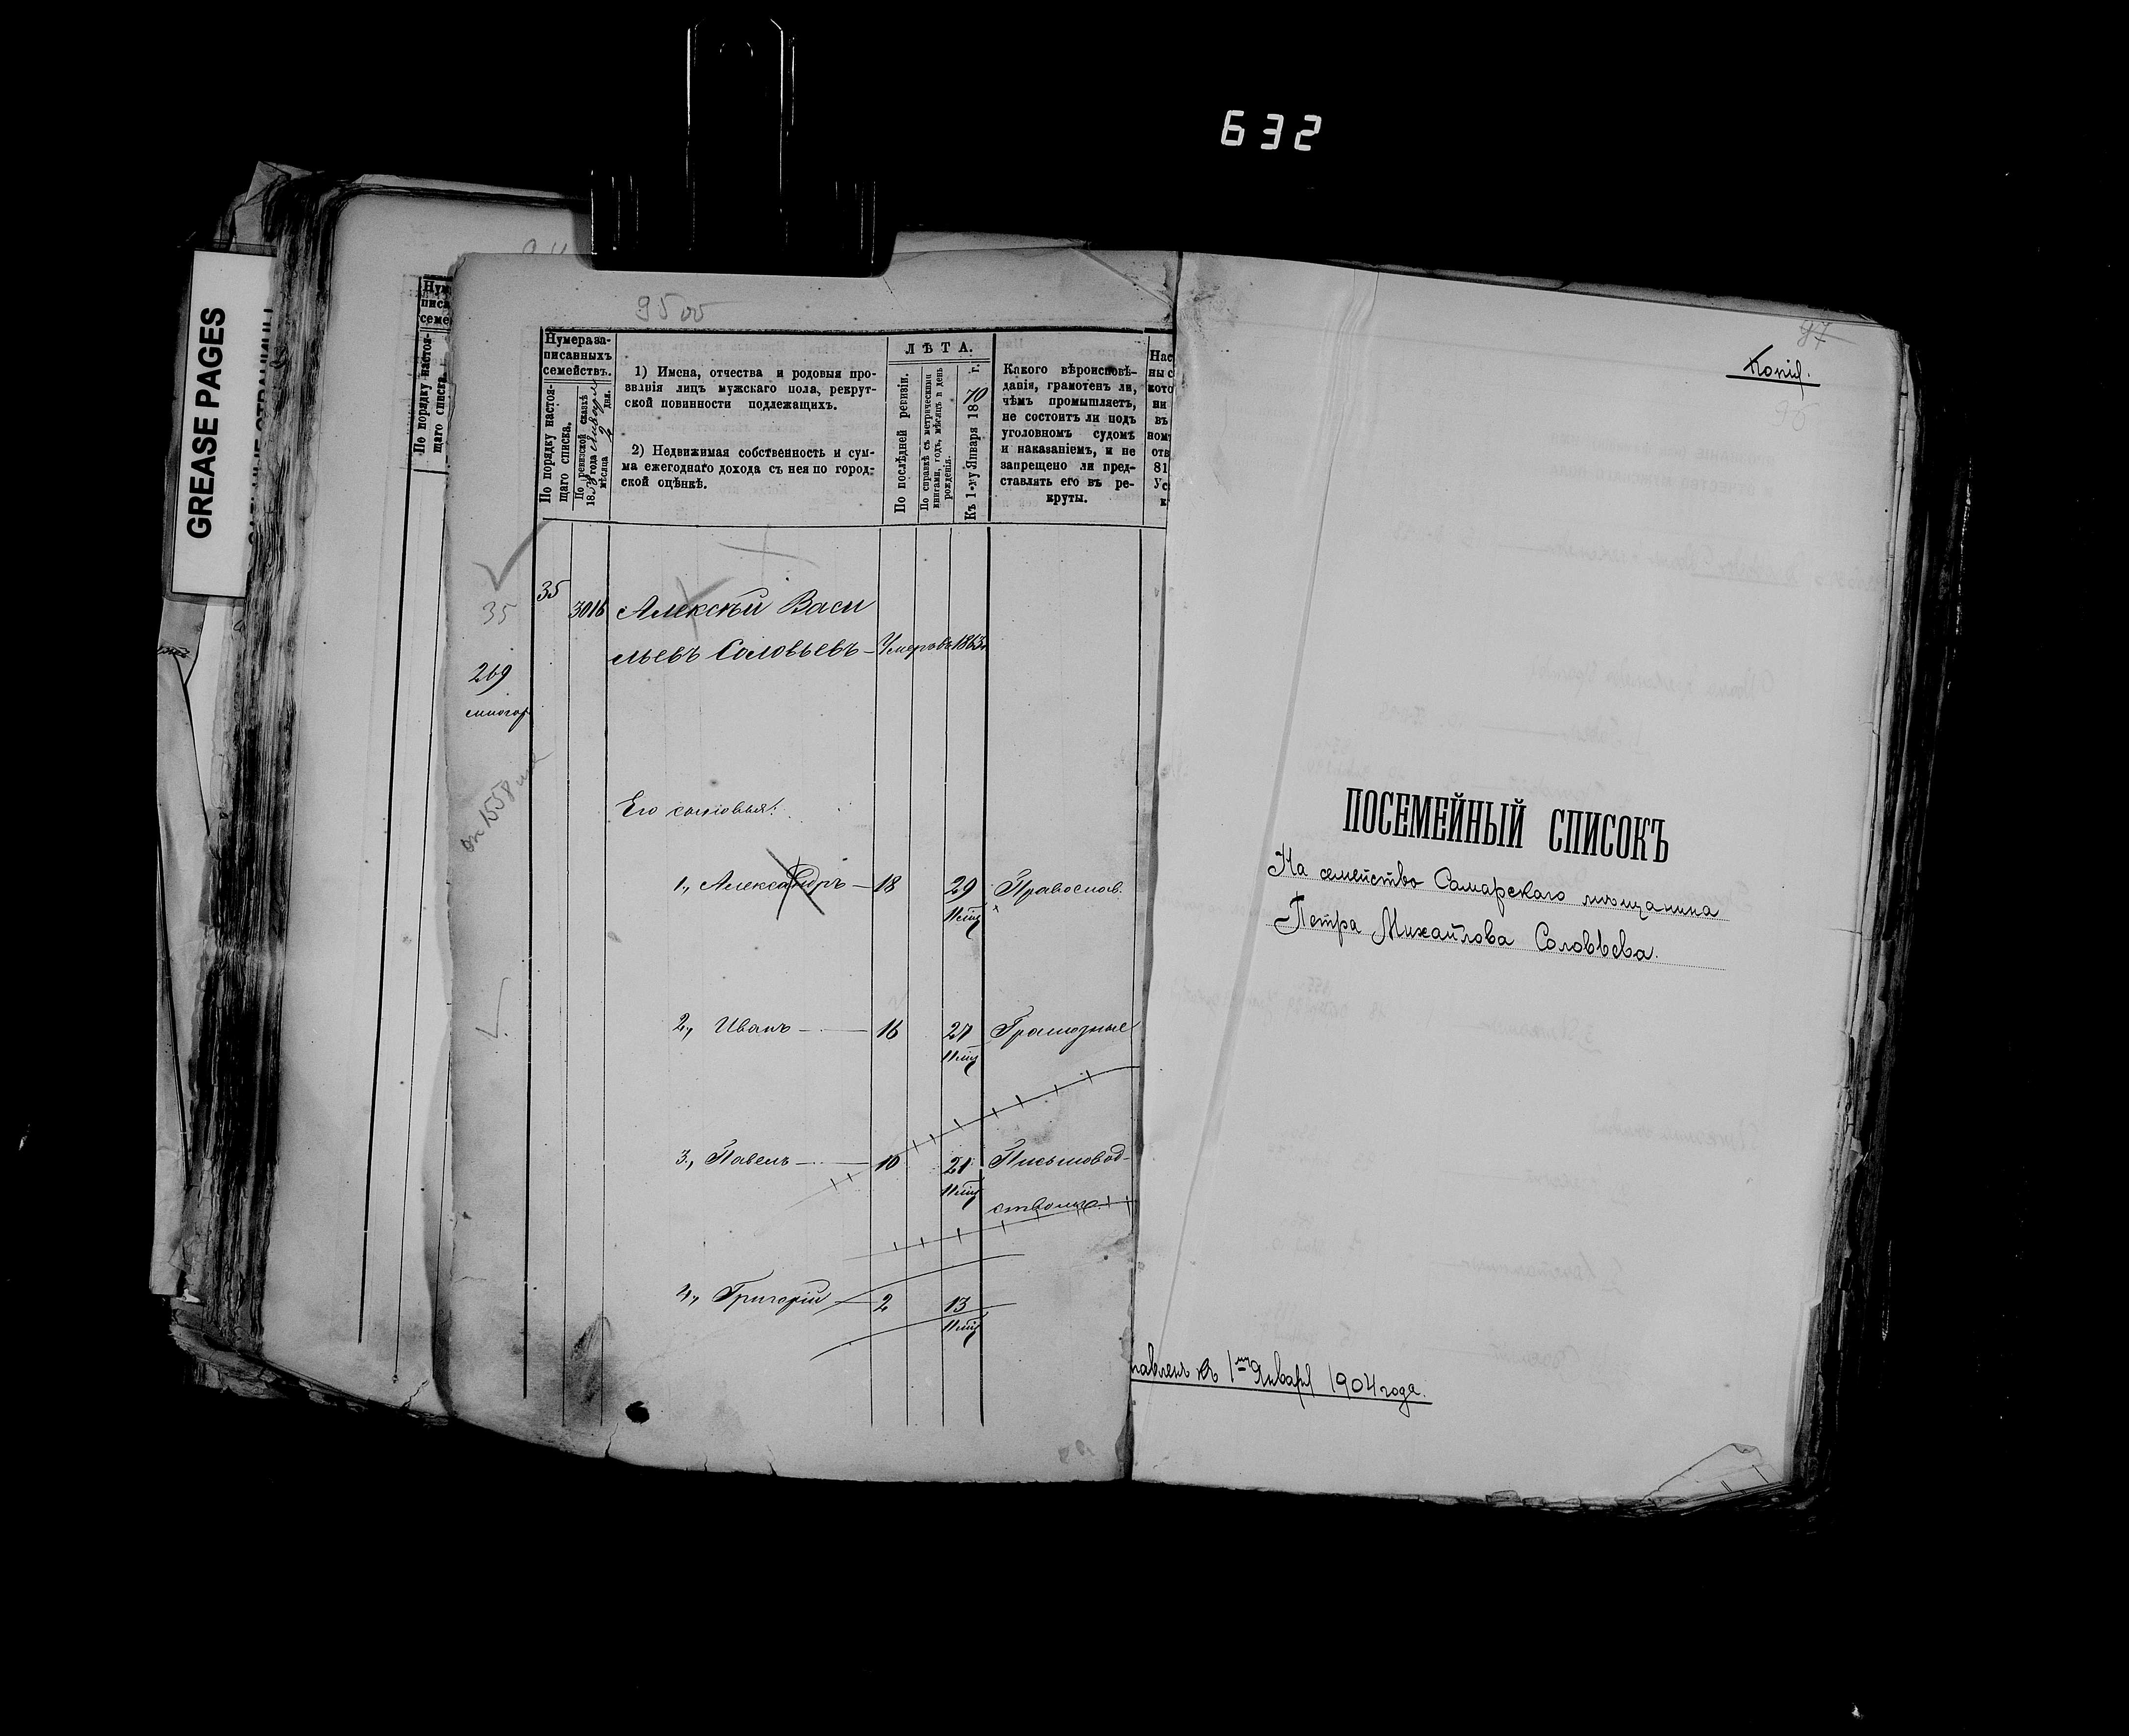 632
GREASE PAGES
9500
Нумера за-
писанныхъ
семействъ.
По порядку настоя-
щаго списка.
По ревизской сказкѣ
18 года
мѣсяца дня.
1) Имена, отчества и родовыя про-
званія лицъ мужскаго пола, рекрут-
ской повинности подлежащихъ.
2) Недвижимая собственность и сум-
ма ежегоднаго дохода съ нея по город-
ской оцѣнкѣ.
ЛѢТА.
По послѣдней ревизіи.
По справкѣ съ метрическими
книгами, годъ, мѣсяцъ и день
рожденія.
Къ 1-му Января 1870 г.
Какого вѣроисповѣ-
данія, грамотенъ ли,
чѣмъ промышляетъ,
не состоитъ ли подъ
уголовномъ судомъ
и наказаніемъ, и не
запрещено ли пред-
ставлять его въ ре-
круты.
35
35 3016 Алексѣй Васи
льевъ Соловьевъ - Умеръ въ 1863
269
Его сыновья:
1., Александръ — 18 29 Православ.
11 мц
2., Иванъ — 16 27 Грамотные
11 мц
3., Павелъ — 10 21 Письмовод-
11 мц
ствомъ
4., Григорій — 2 13
11 мц
97
Копія.
96
ПОСЕМЕЙНЫЙ СПИСОКЪ
На семейство Самарскаго мѣщанина
Петра Михайлова Соловьева.
авленъ къ 1му Января 1904 года.